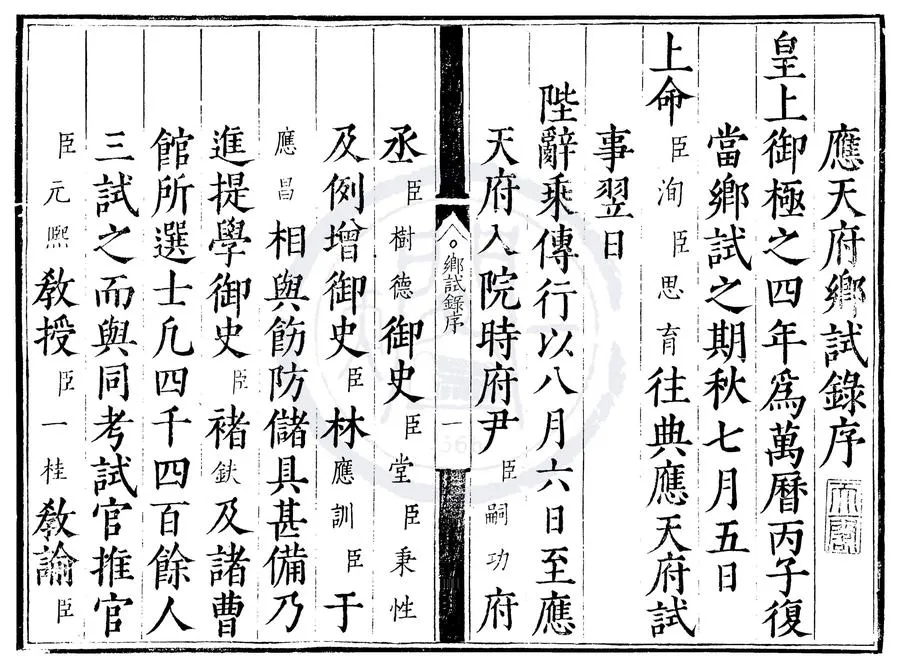 應天府鄉試錄序
皇上御極之四年爲萬曆丙子復
當鄉試之期秋七月五日
上命臣洵臣思育往典應天府試
事翌日
陛辭乘傳行以八月六日至應
天府入院時府尹臣嗣功府
鄉試錄序
一
丞臣樹德御史臣堂臣秉性
及例增御史臣林應訓臣于
應昌相與飭防儲具甚備乃
進提學御史臣褚鈇及諸曹
館所選士凢四千四百餘人
三試之而與同考試官推官
臣元熈教授臣一桂教諭臣